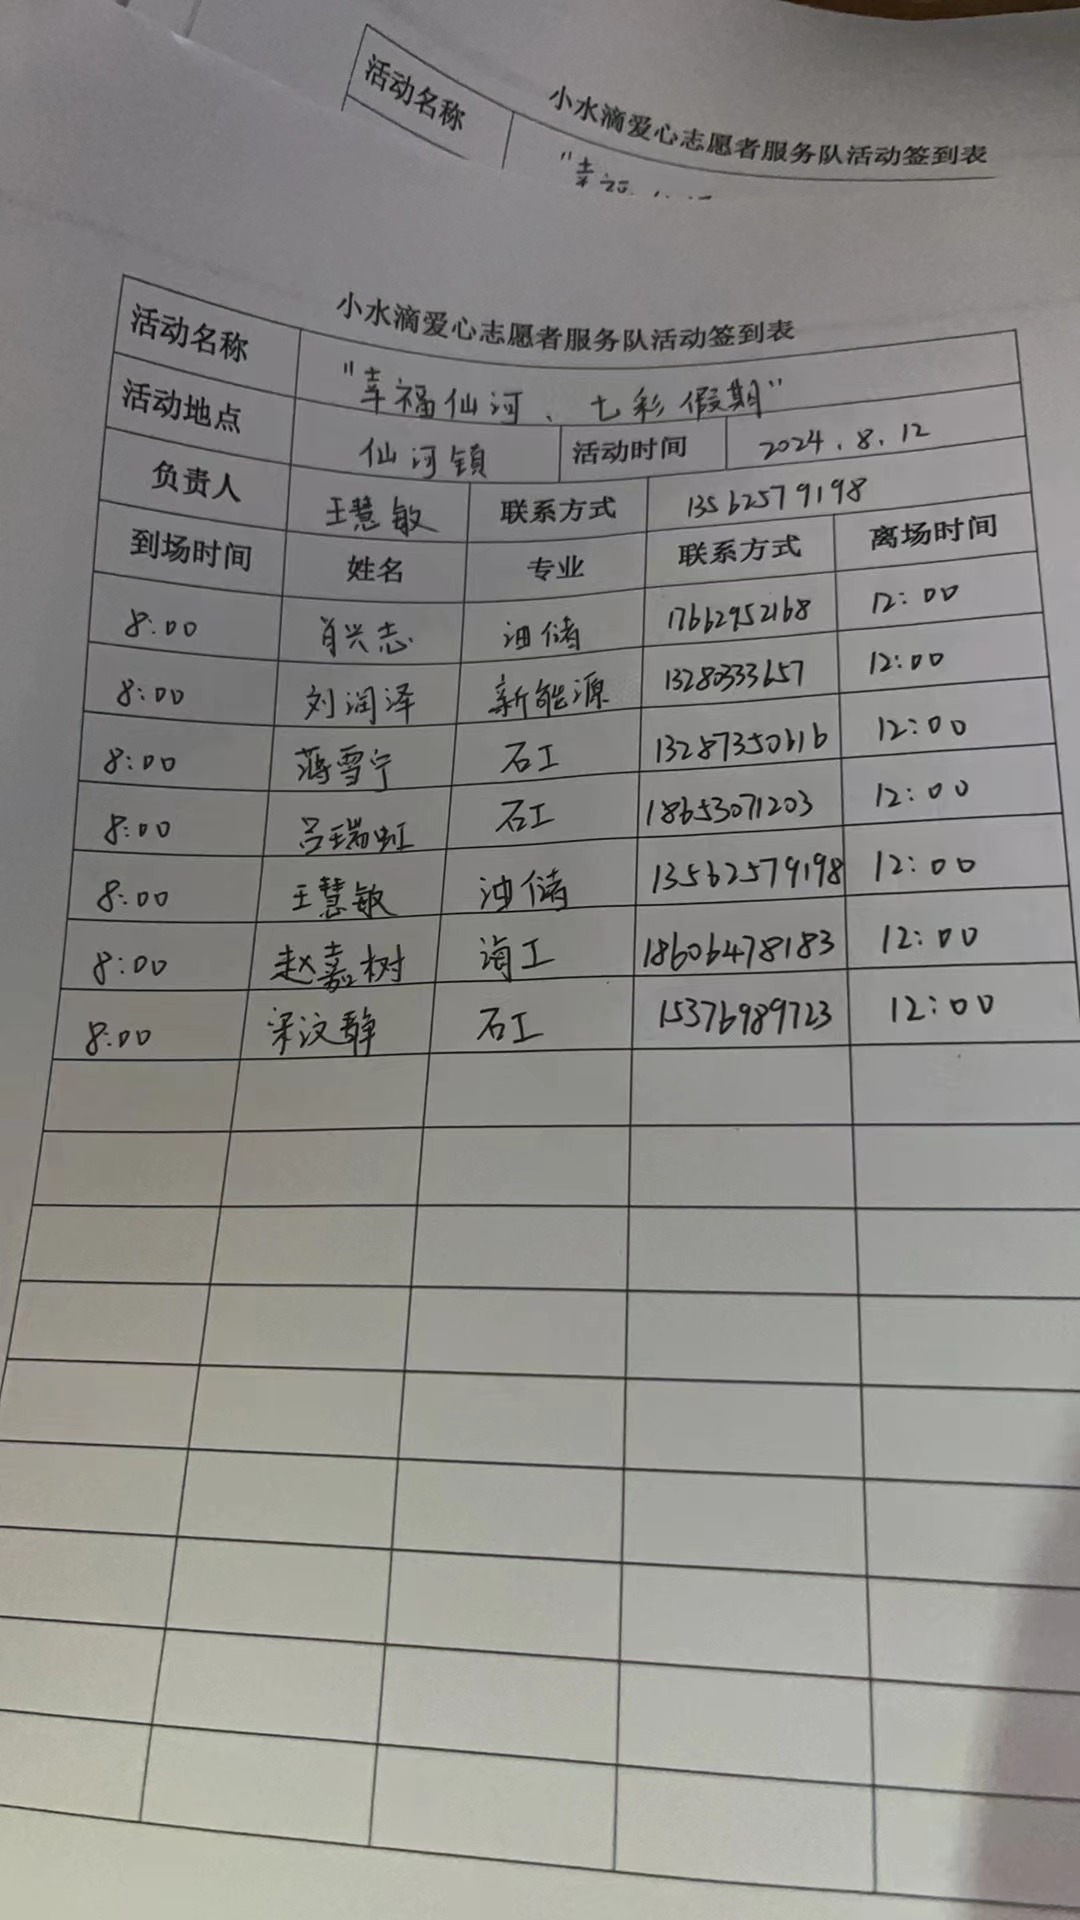 小水滴爱心志愿者服务队活动签到表
活动名称
"幸福
小水滴爱心志愿者服务队活动签到表
活动名称 "幸福仙河、七彩假期"
活动地点 仙河镇 活动时间 2024.8.12
负责人 王慧敏 联系方式 13562579198
到场时间 姓名 专业 联系方式 离场时间
8:00 肖兴志 油储 17662952168 12:00
8:00 刘润泽 新能源 13280333657 12:00
8:00 蒋雪宁 石工 13287350616 12:00
8:00 吕瑞虹 石工 18653071203 12:00
8:00 王慧敏 油储 13562579198 12:00
8:00 赵嘉树 海工 18606478183 12:00
8:00 梁汶静 石工 15376989723 12:00